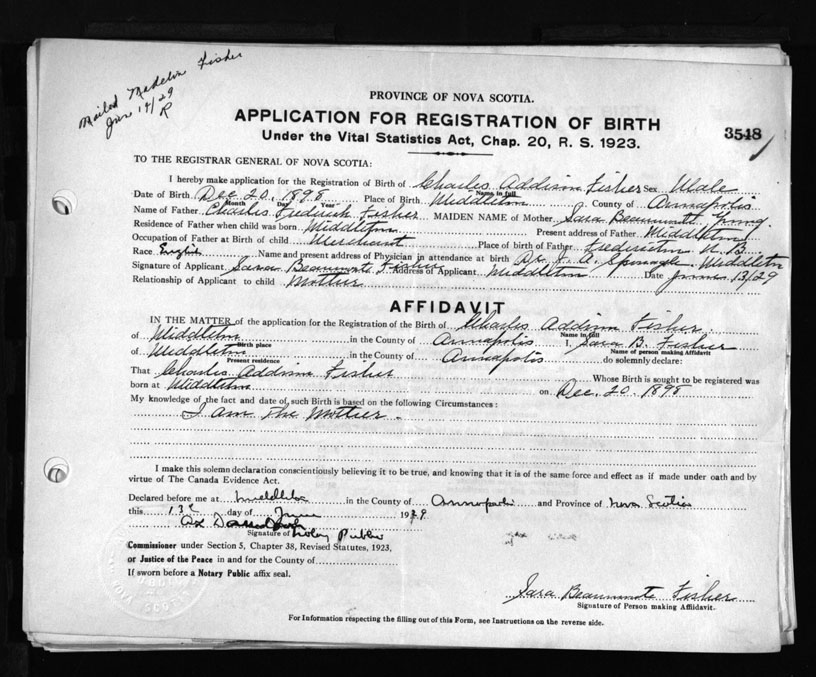 Mailed Medelin Fisher
June 14/29
R
PROVINCE OF NOVA SCOTIA.
APPLICATION FOR REGISTRATION OF BIRTH
3548
Under the Vital Statistics Act, Chap. 20, R. S. 1923.
TO THE REGISTRAR GENERAL OF NOVA SCOTIA:
I hereby make application for the Registration of Birth of Charles Addison Fisher Sex Male
Name in full
Date of Birth Dec 20, 1898 Place of Birth Middleton County of Annapolis
Month Day Year
Name of Father Charles Frederick Fisher MAIDEN NAME of Mother Sara Beaumonte Young
Residence of Father when child was born Middleton Present address of Father Middleton
Occupation of Father at Birth of child Merchant Place of birth of Father Fredericton N. B
Race English Name and present address of Physician in attendance at birth Dr. A. Middleton
Signature of Applicant Sara Beaumonte Fisher Address of Applicant Middleton Date June 13/29
Relationship of Applicant to child Mother
AFFIDAVIT
IN THE MATTER of the application for the Registration of the Birth of Charles Addison Fisher
Name in full
of Middleton in the County of Annapolis I, Sara B. Fisher
Birth place Name of person making Affidavit
of Middleton in the County of Annapolis do solemnly declare:
Present residence
That Charles Addison Fisher Whose Birth is sought to be registered was
born at Middleton on Dec. 20 1898
My knowledge of the fact and date of such Birth is based on the following Circumstances:
I am the Mother.
I make this solemn declaration conscientiously believing it to be true, and knowing that it is of the same force and effect as if made under oath and by
virtue of The Canada Evidence Act.
Declared before me at Middleton in the County of Annapolis and Province of Nova Scotia
this 13th day of June 1929
Signature of Notary Public
Commissioner under Section 5, Chapter 38, Revised Statutes, 1923,
or Justice of the Peace in and for the County of
If sworn before a Notary Public affix seal.
Sara Beaumonte Fisher
Signature of Person making Affidavit.
For Information respecting the filling out of this Form, see Instructions on the reverse side.